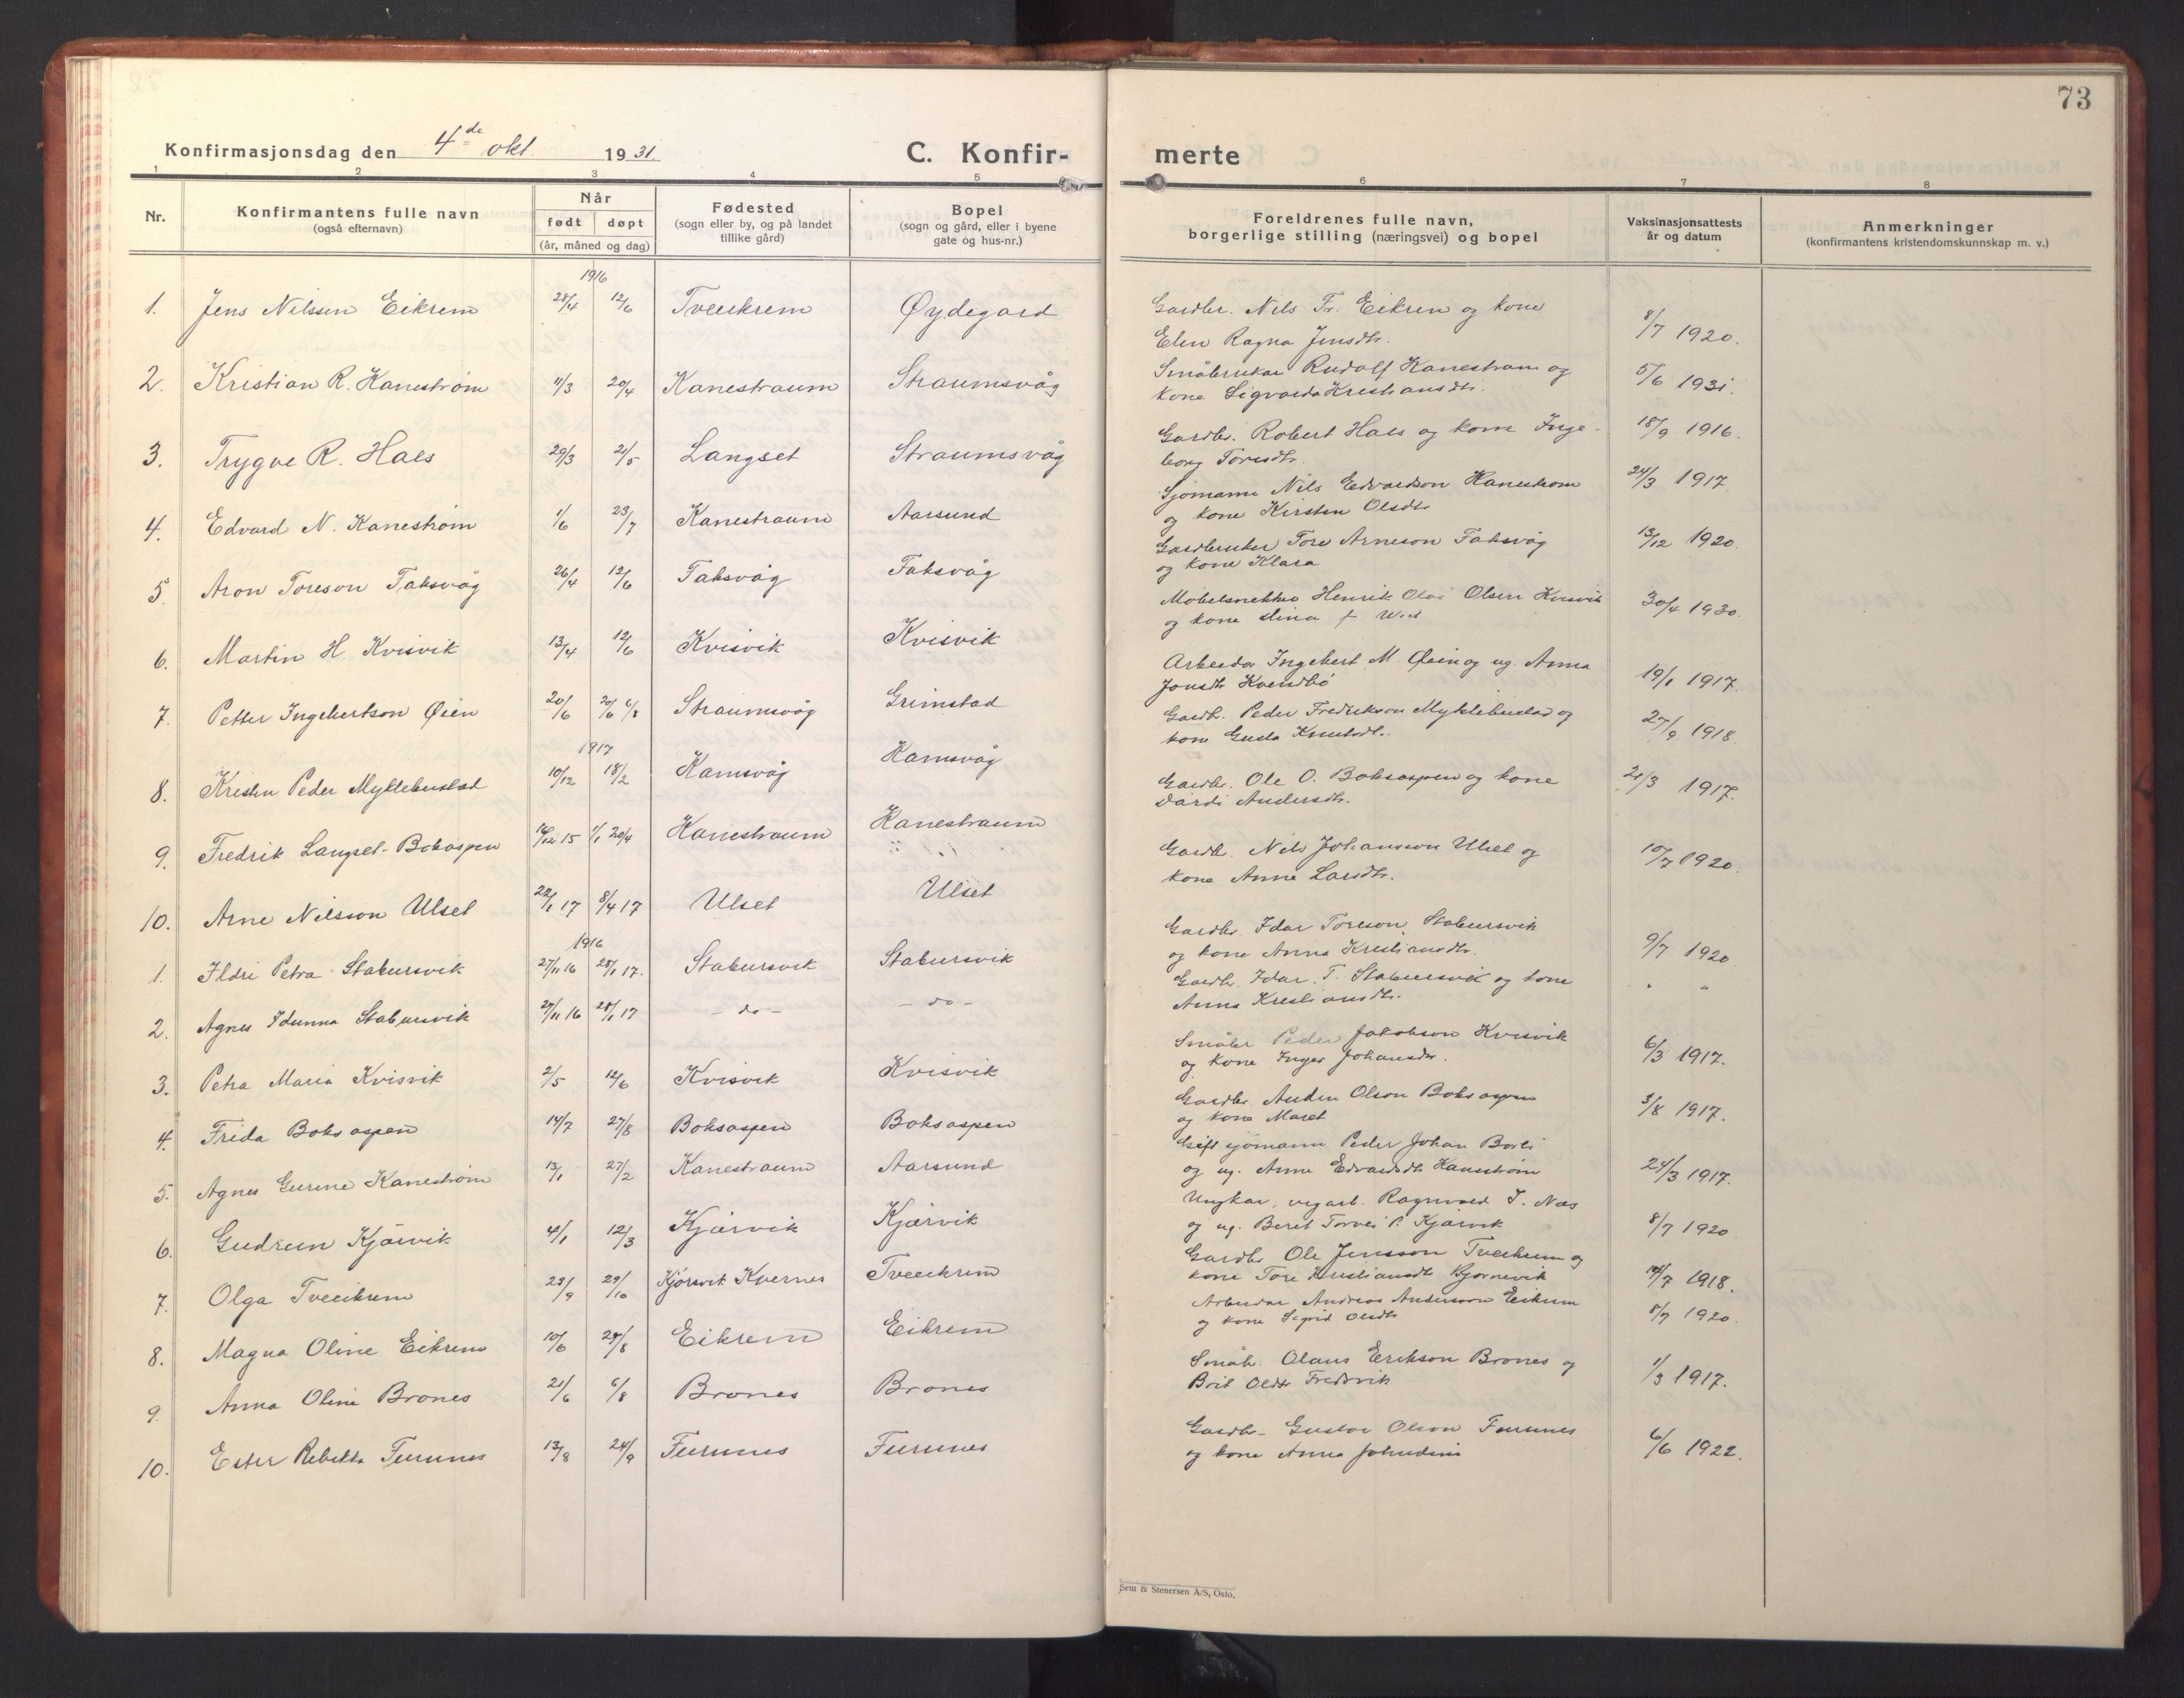 73
Konfirmasjonsdag den 4de okt. 1931
C. Konfir- merte
1 2 3 4 5 6 7 8
Nr.
Konfirmantens fulle navn
(også efternavn)
Når
født døpt
(år, måned og dag)
Fødested
(sogn eller by, og på landet
tillike gård)
Bopel
(sogn og gård, eller i byene
gate og hus-nr.)
Foreldrenes fulle navn,
borgerlige stilling (næringsvei) og bopel
Vaksinasjonsattests
år og datum
Anmerkninger
(konfirmantens kristendomskunnskap m. v.)
1916
1. Jens Nilssen Eikrem 28/4 12/6 Tveeikrem Øydegard Gardbr. Nils Fr. Eikrem og kone
Elen Ragna Jensdtr. 8/7 1920.
2. Kristian R. Kanestrøm 11/3 20/4 Kanestraum Straumsvåg Småbruker Rudolf Kanestrøm og
kone Sigvarda Kristiansdtr. 5/6 1931.
3. Trygve R. Hals 29/3 21/5 Langset Straumsvåg Gardbr. Robert Hals og kone Inge-
borg Toresdtr. 18/9 1916.
4. Edvard N. Kanestrøm 1/6 23/7 Kanestraum Aarsund Sjømann Nils Edvardson Kanestrøm
og kone Kirsten Olsdtr 24/3 1917.
5. Aron Toreson Faksvåg 26/4 12/6 Faksvåg Faksvåg Gardbruker Tore Arneson Faksvåg
og kone Klara 13/12 1920.
6. Martin H. Kvisvik 13/4 12/6 Kvisvik Kvisvik Møbelsnekker Henrik Olai Olsen Kvisvik
og kone Stina f. 30/4 1930.
7. Petter Ingebertson Øien 20/6 20/6 6/8 Straumsvåg Grimstad Arbeider Ingebert M. Øien og ug. Anna
Jonsdtr Kvendbø 19/1 1917.
1917
8. Kristen Peder Myklebustad 10/12 18/2 Kamsvåg Kamsvåg Gardb. Peder Fredrikson Myklebustad og
kone Guda Knutsdt. 27/9 1918
9. Fredrik Langset-Boksaspen 14/12 15 1/1 20/4 Kanestraum Kanestraum Gardbr. Ole O. Boksaspen og kone
Dardi Andersdtr. 21/3 1917.
10. Arne Nilsson Ulset 22/1 17 8/4 17 Ulset Ulset Gardb. Nils Johansson Ulset og
kone Anne Larsdtr. 10/7 1920.
1916
1. Ildri Petra Stabursvik 27/11 16 28/1 17. Stabursvik Stabursvik Gardbr. Idar Toreson Stabursvik
og kone Anna Kristiansdtr. 9/7 1920.
2. Agnes Idunna Stabursvik 27/11 16 28/1 17 - do - - do - Gardb. Idar T. Stabursvik og kone
Anna Kristiansdtr. " "
3. Petra Maria Kvisvik 2/5 12/6 Kvisvik Kvisvik Småbr Peder Jakobson Kvisvik
og kone Inger Johansdtr. 6/3 1917.
4. Frida Boksaspen 14/7 27/8 Boksaspen Boksaspen Gardbr. Anders Olson Boksaspen
og kone Maret 3/8 1917.
5. Agnes Gurine Kanestrøm 13/1 27/2 Kanestraum Aarsund Gift sjømann Peder Johan Borli
og ug. Anne Edvardsdtr Kanestrøm 24/3 1917.
6. Gudrun Kjørvik 4/1 12/3 Kjørvik Kjørvik Ungkar, vegarb. Ragnvald J. Næs
og ug. Beret Torvei P. Kjørvik 8/7 1920
7. Olga Tveeikrem 23/9 29/10 Kjørsvik Kvernes Tveeikrem Gardbr. Ole Jensson Tveeikrem og
kone Tore Kristiansdt Bjørnevik 14/7 1918.
8. Magna Oline Eikrem 10/6 27/8 Eikrem Eikrem Arbeidar Andreas Anderson Eikrem
og kone Sigrid Olsdtr 8/7 1920.
9. Anna Olina Brones 21/6 6/8 Brones Brones Småb. Olaus Erikson Brones og
Brit Oldtr Fredsvik 1/3 1917.
10. Ester Rebekka Furunes 13/8 24/9 Furunes Furunes Gardb. Gustav Olson Furunes
og kone Anna 6/6 1922.
Sem & Stenersen A/S, Oslo.